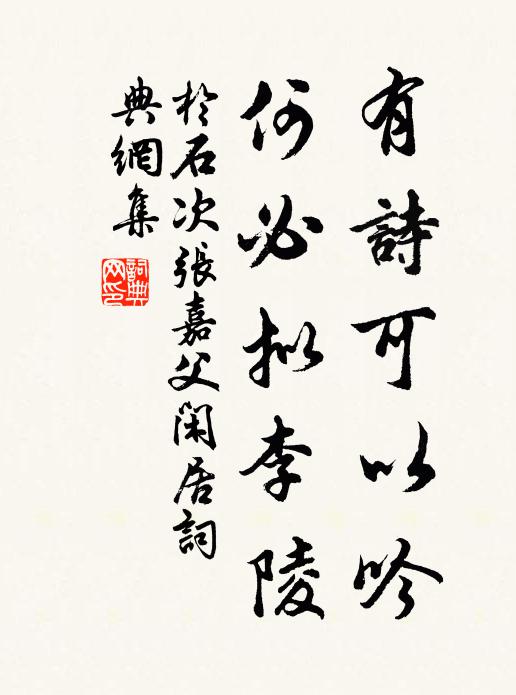 有詩可以吟
何必拟李陵
於石次張嘉父閑居詞
典網集
詞典网印